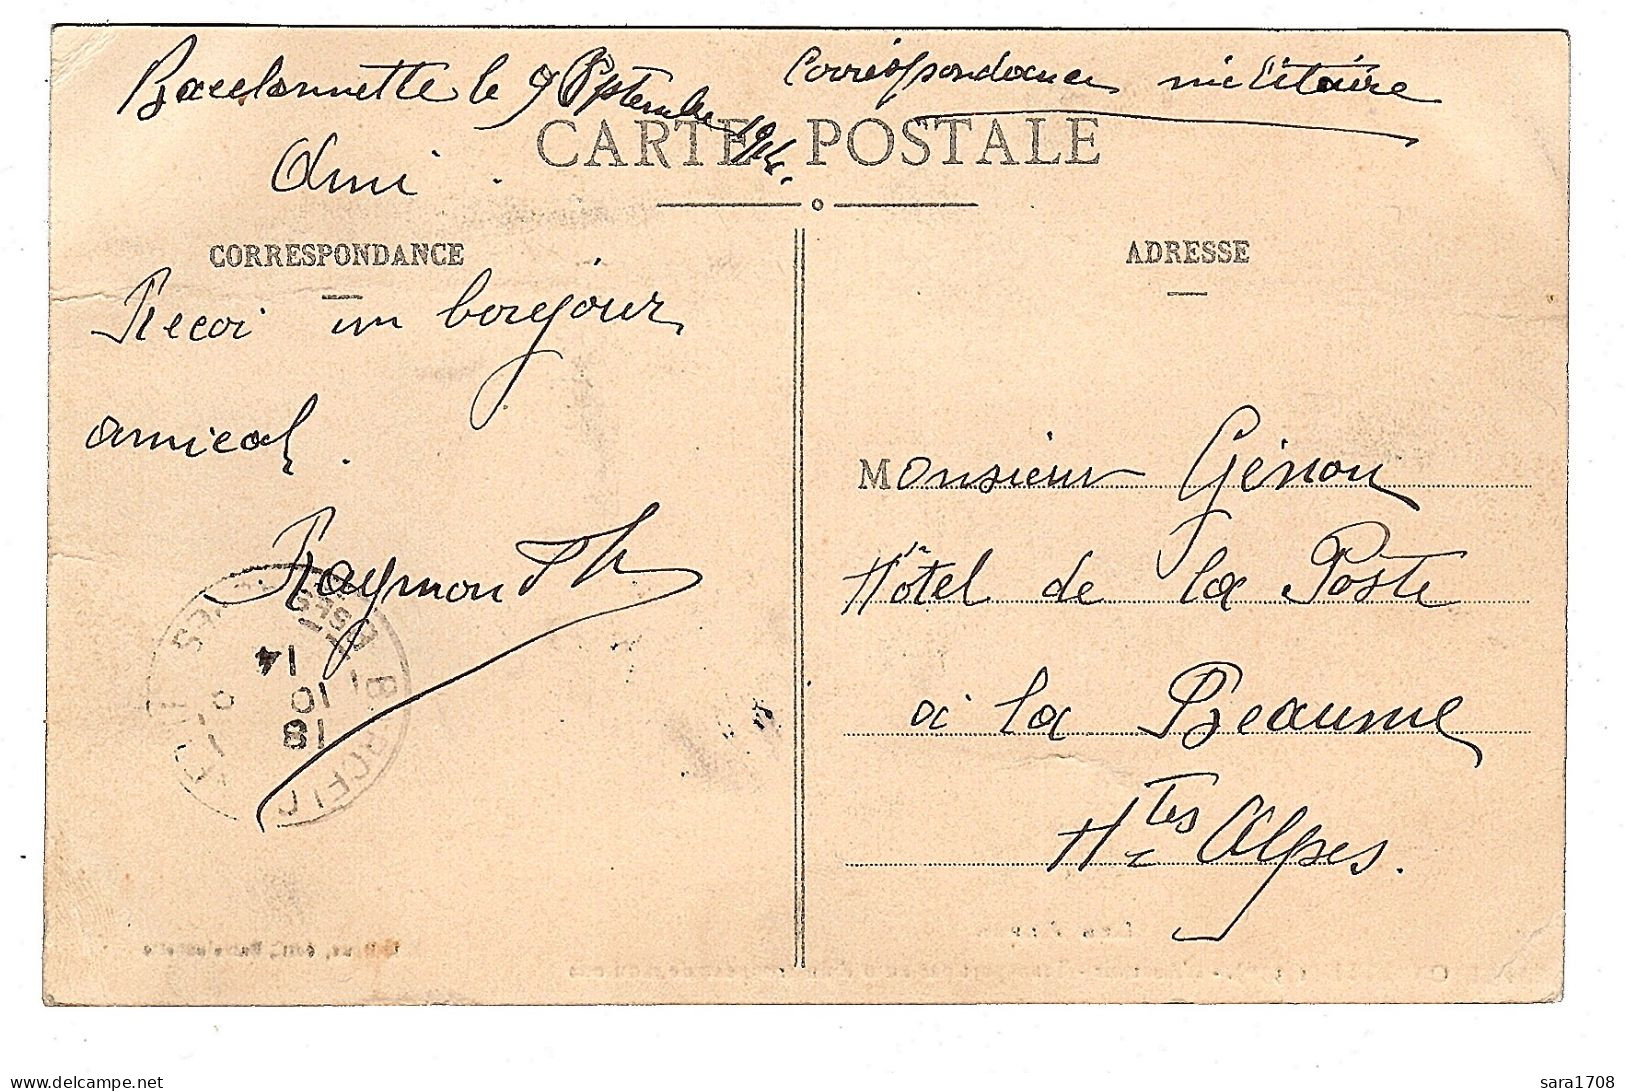 Barcelonnette le 9 Septembre 1914.
Correspondance militaire
CARTE POSTALE
Ami.
CORRESPONDANCE
ADRESSE
Recoi un bonjour
amical.
Raymond Th
Monsieur Génou
Hôtel de la Poste
à la Beaume
Htes Alpes.
18
10
14
delcampe.net
sara1708